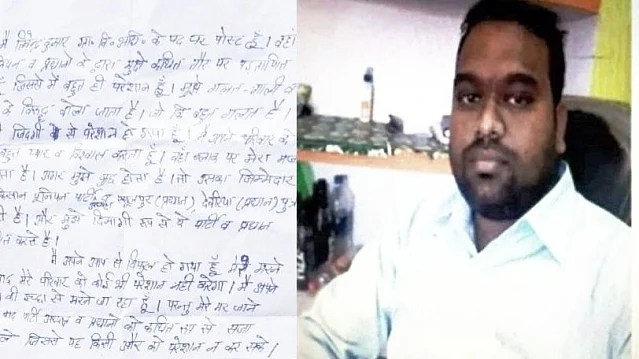 मै त्रिवेन्द्र कुमार ग्रा. वि. अधि. के पद पर पोस्ट हूँ। वहाँ
व प्रधानो के द्वारा मुझे कथित तौर पर
जिससे मैं बहुत ही परेशान हूँ। मुझे गलत-गाली व
के विरुद्ध बोला जाता है। जो कि बहुत गलत है।
जिन्दगी से परेशान हो गया हूँ। मैं अपने परिवार के
बहुत प्यार व विश्वास करता हूँ। वहाँ पर मेरा
है। अगर मुझे कुछ होता है। तो उसका जिम्मेदार
किसान यूनियन पार्टी व रसूलपुर (प्रधान), देवरिया (प्रधान) पुत्र
है। और मुझे दिमागी रूप से ये पार्टी व प्रधान
करते है।
मै अपने आप से विफल हो गया हूँ मेरे मरने
बाद मेरे परिवार को कोई भी परेशान नहीं करेगा। मै अपने
की इच्छा से मरने जा रहा हूँ। परन्तु मेरे मर जाने
बाद पार्टी अध्यक्ष व प्रधानो को कथित रूप से सजा
जिससे यह किसी और को परेशान न कर सकें।